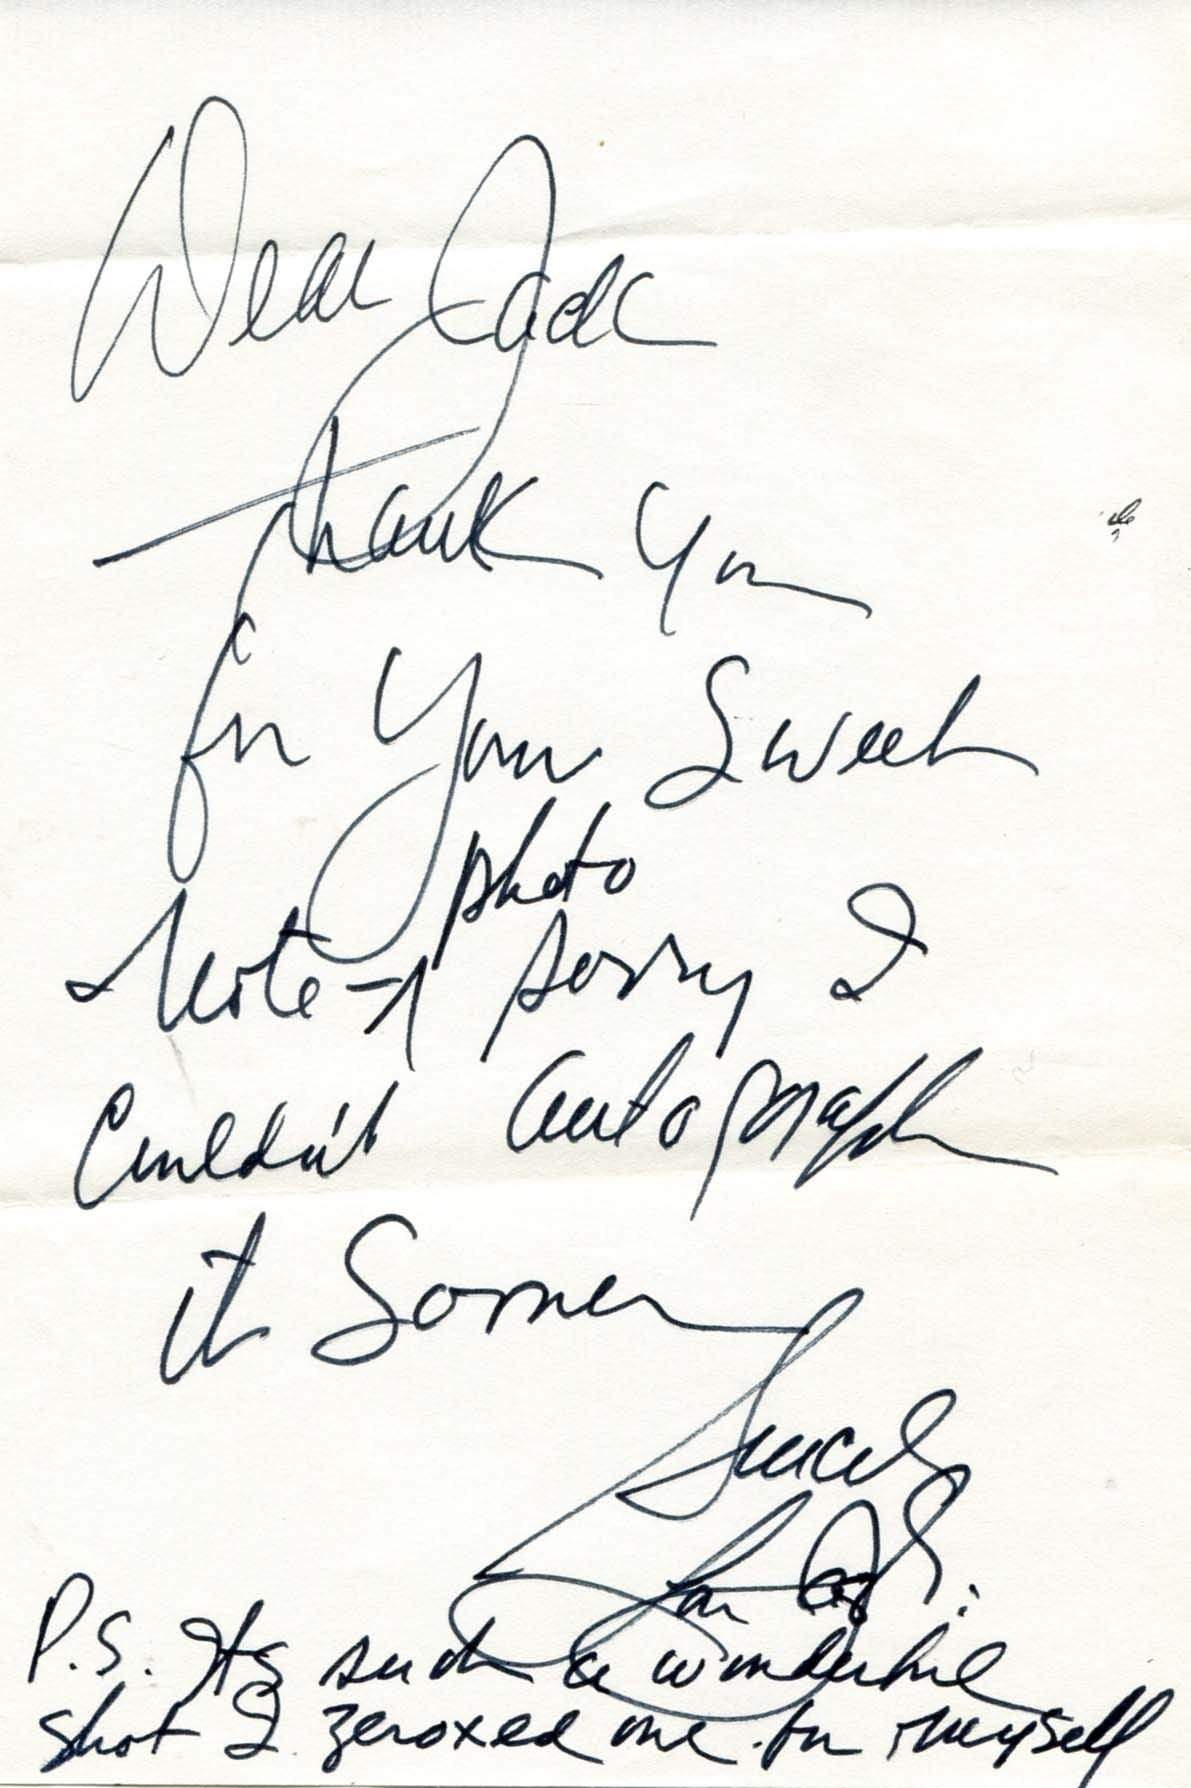 Dear Jack
Thank You
for Your Sweet
photo
Note - sorry I
Couldn't autograph
it Sooner
P.S. Its such a wonderful
shot I zeroxed one for myself